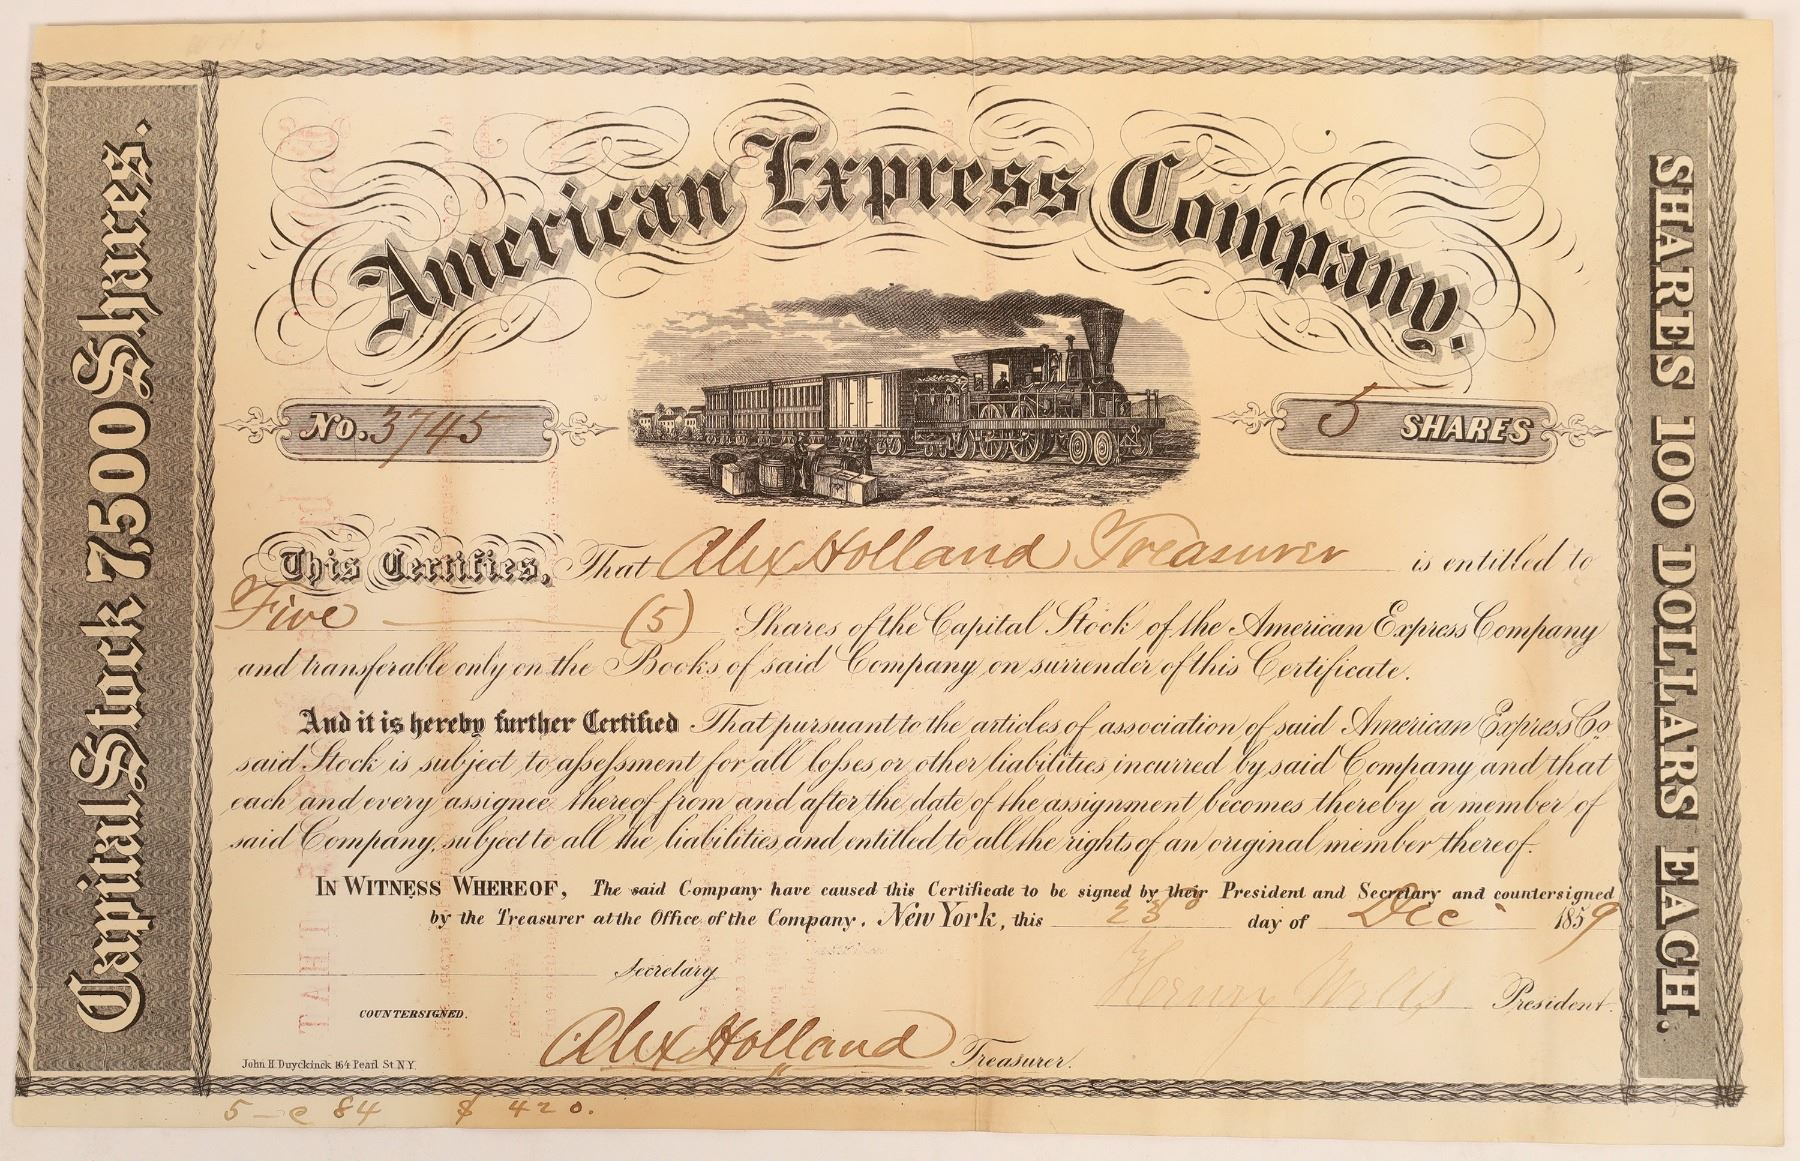 American Express Company.
Capital Stock 7,500 Shares.
SHARES 100 DOLLARS EACH.
No. 3745
5 SHARES
This Certifies, That Alex Holland Treasurer is entitled to
Five (5) Shares of the Capital Stock of the American Express Company
and transferable only on the Books of said Company on surrender of this Certificate.
And it is hereby further Certified That pursuant to the articles of association of said American Express Co.
said Stock is subject to assessment for all losses or other liabilities incurred by said Company and that
each and every assignee thereof from and after the date of the assignment becomes thereby a member of
said Company, subject to all the liabilities and entitled to all the rights of an original member thereof.
IN WITNESS WHEREOF, The said Company have caused this Certificate to be signed by their President and Secretary and countersigned
by the Treasurer at the Office of the Company, New York, this 23 day of Dec 1859
Secretary
Henry Wells President.
COUNTERSIGNED.
Alex Holland Treasurer.
John H Duyckinck 164 Pearl St. N.Y.
5 - @ 84 $ 420.